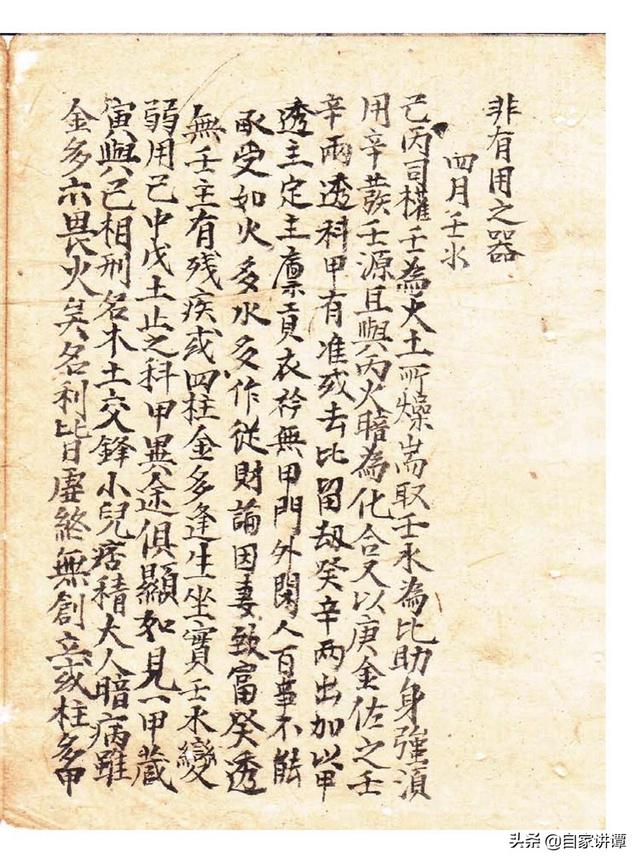 非有用之器
四月壬水
己丙司權壬為火土所燥耑取壬水為比助身強須
用辛發壬源且與丙火暗為化合又以庚金佐之壬
辛兩透科甲有准或去比留劫癸辛兩出加以甲
透主定主廪貢衣衿無甲門外閑人百事不能
承受如火多水多作從財論因妻致富癸透
無壬主有残疾或四柱金多逢生坐實壬水變
弱用己中戊土止之科甲異途俱顯如見一甲藏
寅與己相刑名木土交鋒小兒痞積大人暗病雖
金多亦畏火矣名利皆虛終無創立或柱多甲
头条 @自家讲谭